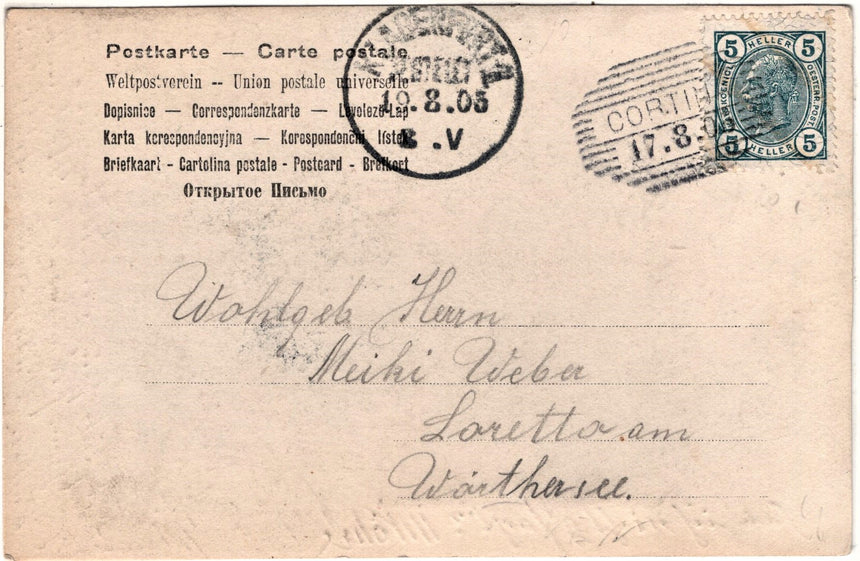 Postkarte — Carte postale
Weltpostverein -- Union postale universelle
Dopisnice — Correspondenzkarte — Levelező-Lap
Karta korespondencyjna — Korespondenčni lístek
Briefkaart - Cartolina postale - Postcard - Brefkort
Открытое Письмо
KLAGENFURT 2
BESTELLT
19.8.05
.V
CORTIN
17.8.0
5 HELLER 5
5 HELLER 5
Wohlgeb Herrn
Meiki Weber
Loretto am
Wörthersee.